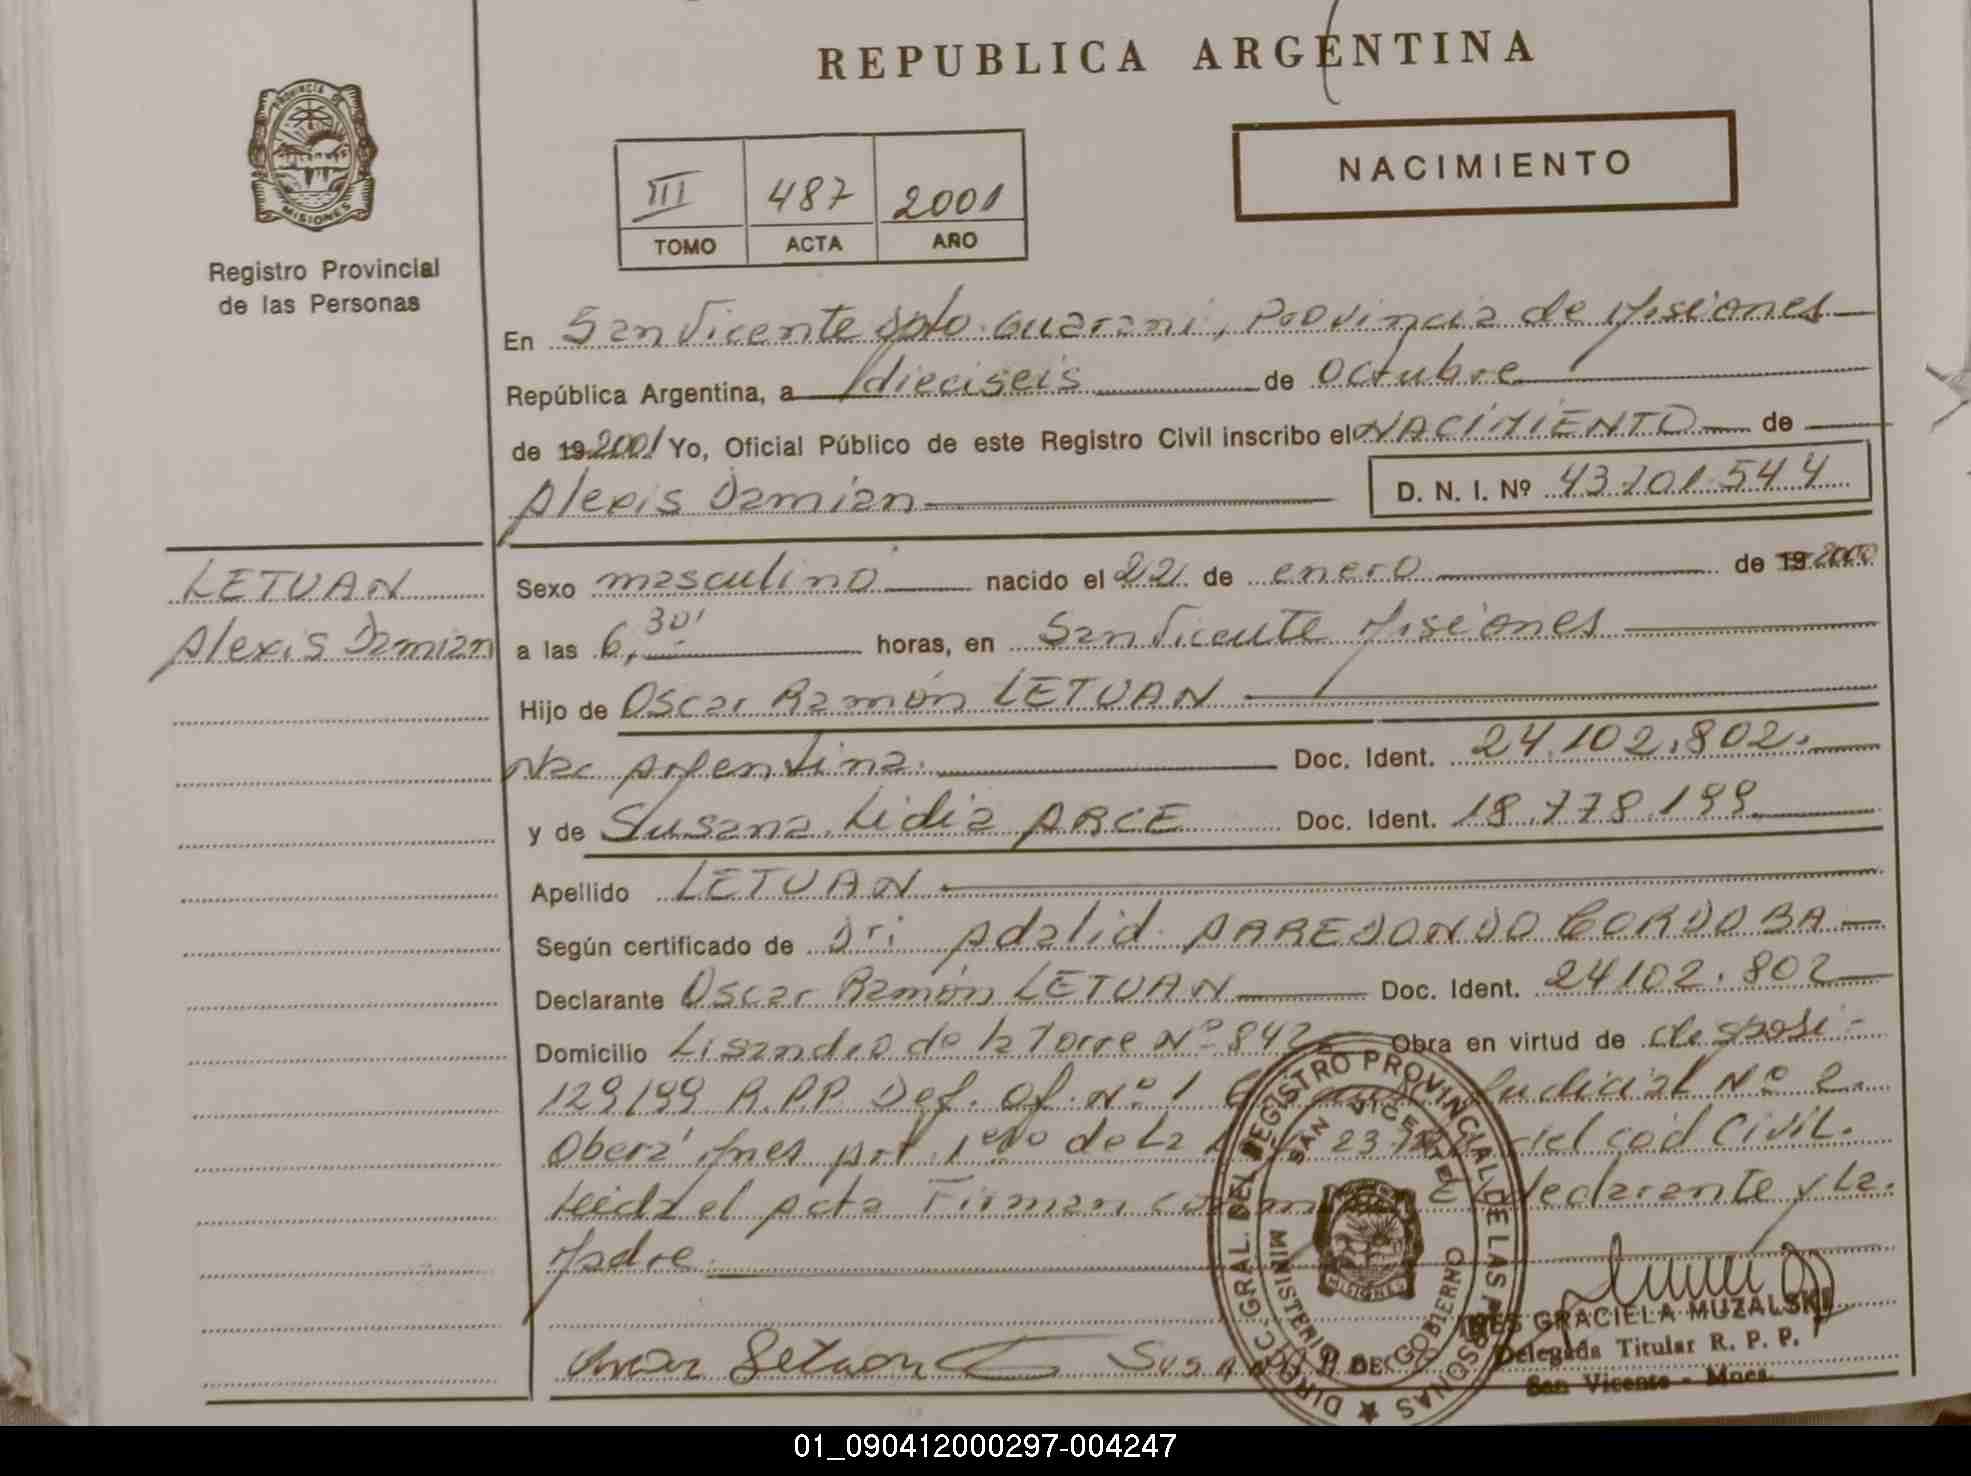 REPUBLICA ARGENTINA
PROVINCIA DE
MISIONES
Registro Provincial
de las Personas
III 487 2001
TOMO ACTA AÑO
NACIMIENTO
En San Vicente Dpto. Guarani, Provincia de Misiones
República Argentina, a dieciseis de Octubre
de 19 2001 Yo, Oficial Público de este Registro Civil inscribo el NACIMIENTO de
Alexis Damian D. N. I. Nº 43.101.544
LETUAN
Alexis Damian
Sexo masculino nacido el 22 de enero de 19 2000
a las 6,30' horas, en San Vicente Misiones
Hijo de Oscar Ramón LETUAN
Nac Argentina. Doc. Ident. 24.102.802.
y de Susana Lidia ARCE Doc. Ident. 18.778.199
Apellido LETUAN
Según certificado de Dr. Adalid ARREDONDO CORDOBA
Declarante Oscar Ramón LETUAN Doc. Ident. 24102.802
Domicilio Lisandro de la Torre Nº 842 Obra en virtud de disposi-
129/99 R.P.P. Def. Of. Nº 1 Judicial Nº 2.
Oberá Mnes por de la del cód Civil.
Leida el acta Firman declarante y la
Madre.
Oscar Letuan Susana
DIREC. GRAL. DEL REGISTRO PROVINCIAL DE LAS PERSONAS
MINISTERIO DE GOBIERNO
SAN VICENTE
MISIONES
INES GRACIELA MUZALSKI
Delegada Titular R. P. P.
San Vicente - Mnes.
01_090412000297-004247